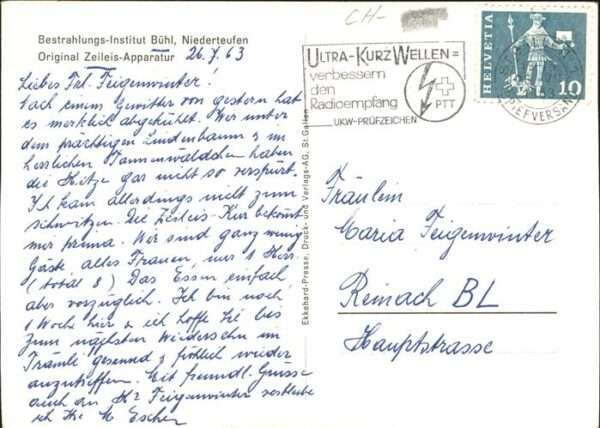 CH-
Bestrahlungs-Institut Bühl, Niederteufen
Original Zeileis-Apparatur 26.7.63
Liebes Frl. Feigenwinter!
Nach einem Gewitter von gestern hat
es merklich abgekühlt. Wir unter
dem prächtigen Lindenbaum & im
herrlichen Tannenwäldchen haben
die Hitze gar nicht so verspürt.
Ich kam allerdings nicht zum
schwitzen. Die Zeileis-Kur bekommt
mir prima. Wir sind ganz wenig
Gäste alles Frauen, nur 1 Herr
(total 8) Das Essen einfach
aber vorzüglich. Ich bin noch
1 Woche hier & ich hoffe Sie bis
zum nächsten Wiedersehn im
Trämli gesund & fröhlich wieder
anzutreffen. Mit freundl. Grüsse
auch an Hr Feigenwinter verbleibe
ich Ihr M Escher
Ekkehard-Presse, Druck- und Verlags-AG, St. Gallen
ULTRA-KURZWELLEN=
verbessern
den
Radioempfang
PTT
UKW-PRÜFZEICHEN
HELVETIA
10
BRIEFVERSAND
Fräulein
Maria Feigenwinter
Reinach BL
Hauptstrasse